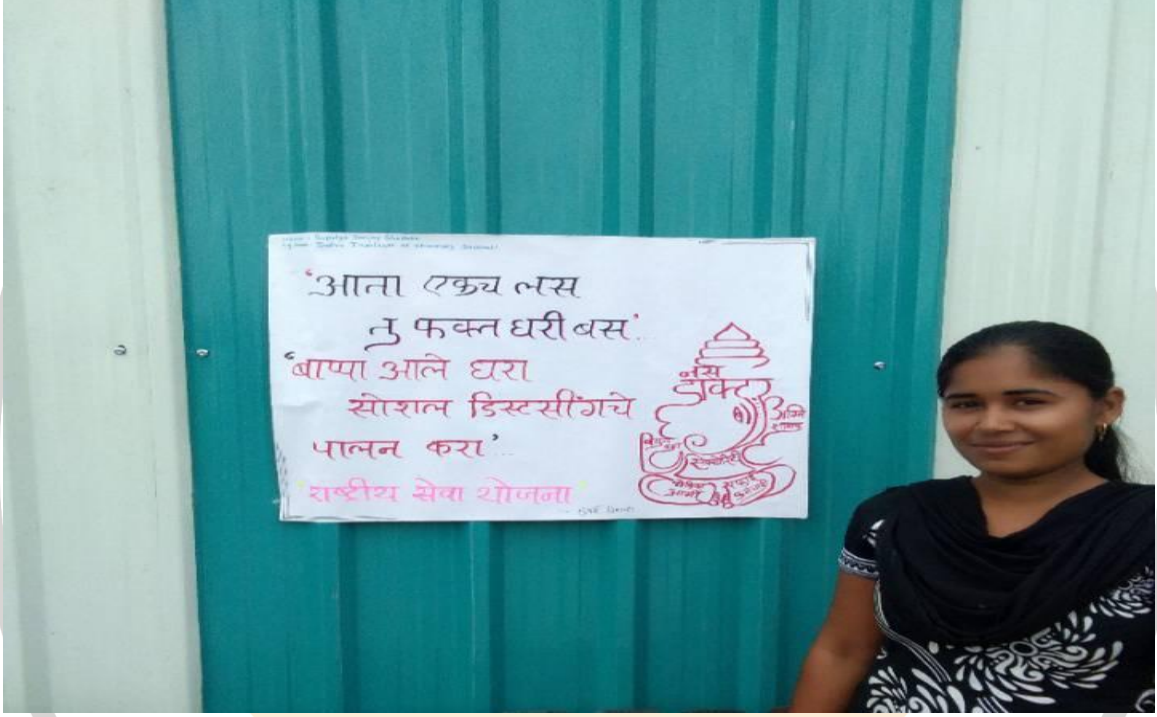 'आता एकच लस
तु फक्त घरी बस'..
'बाप्पा आले घरा
सोशल डिस्टसींगचे
पालन करा'...
'राष्टीय सेवा योजना'
नर्स
डॉक्टर